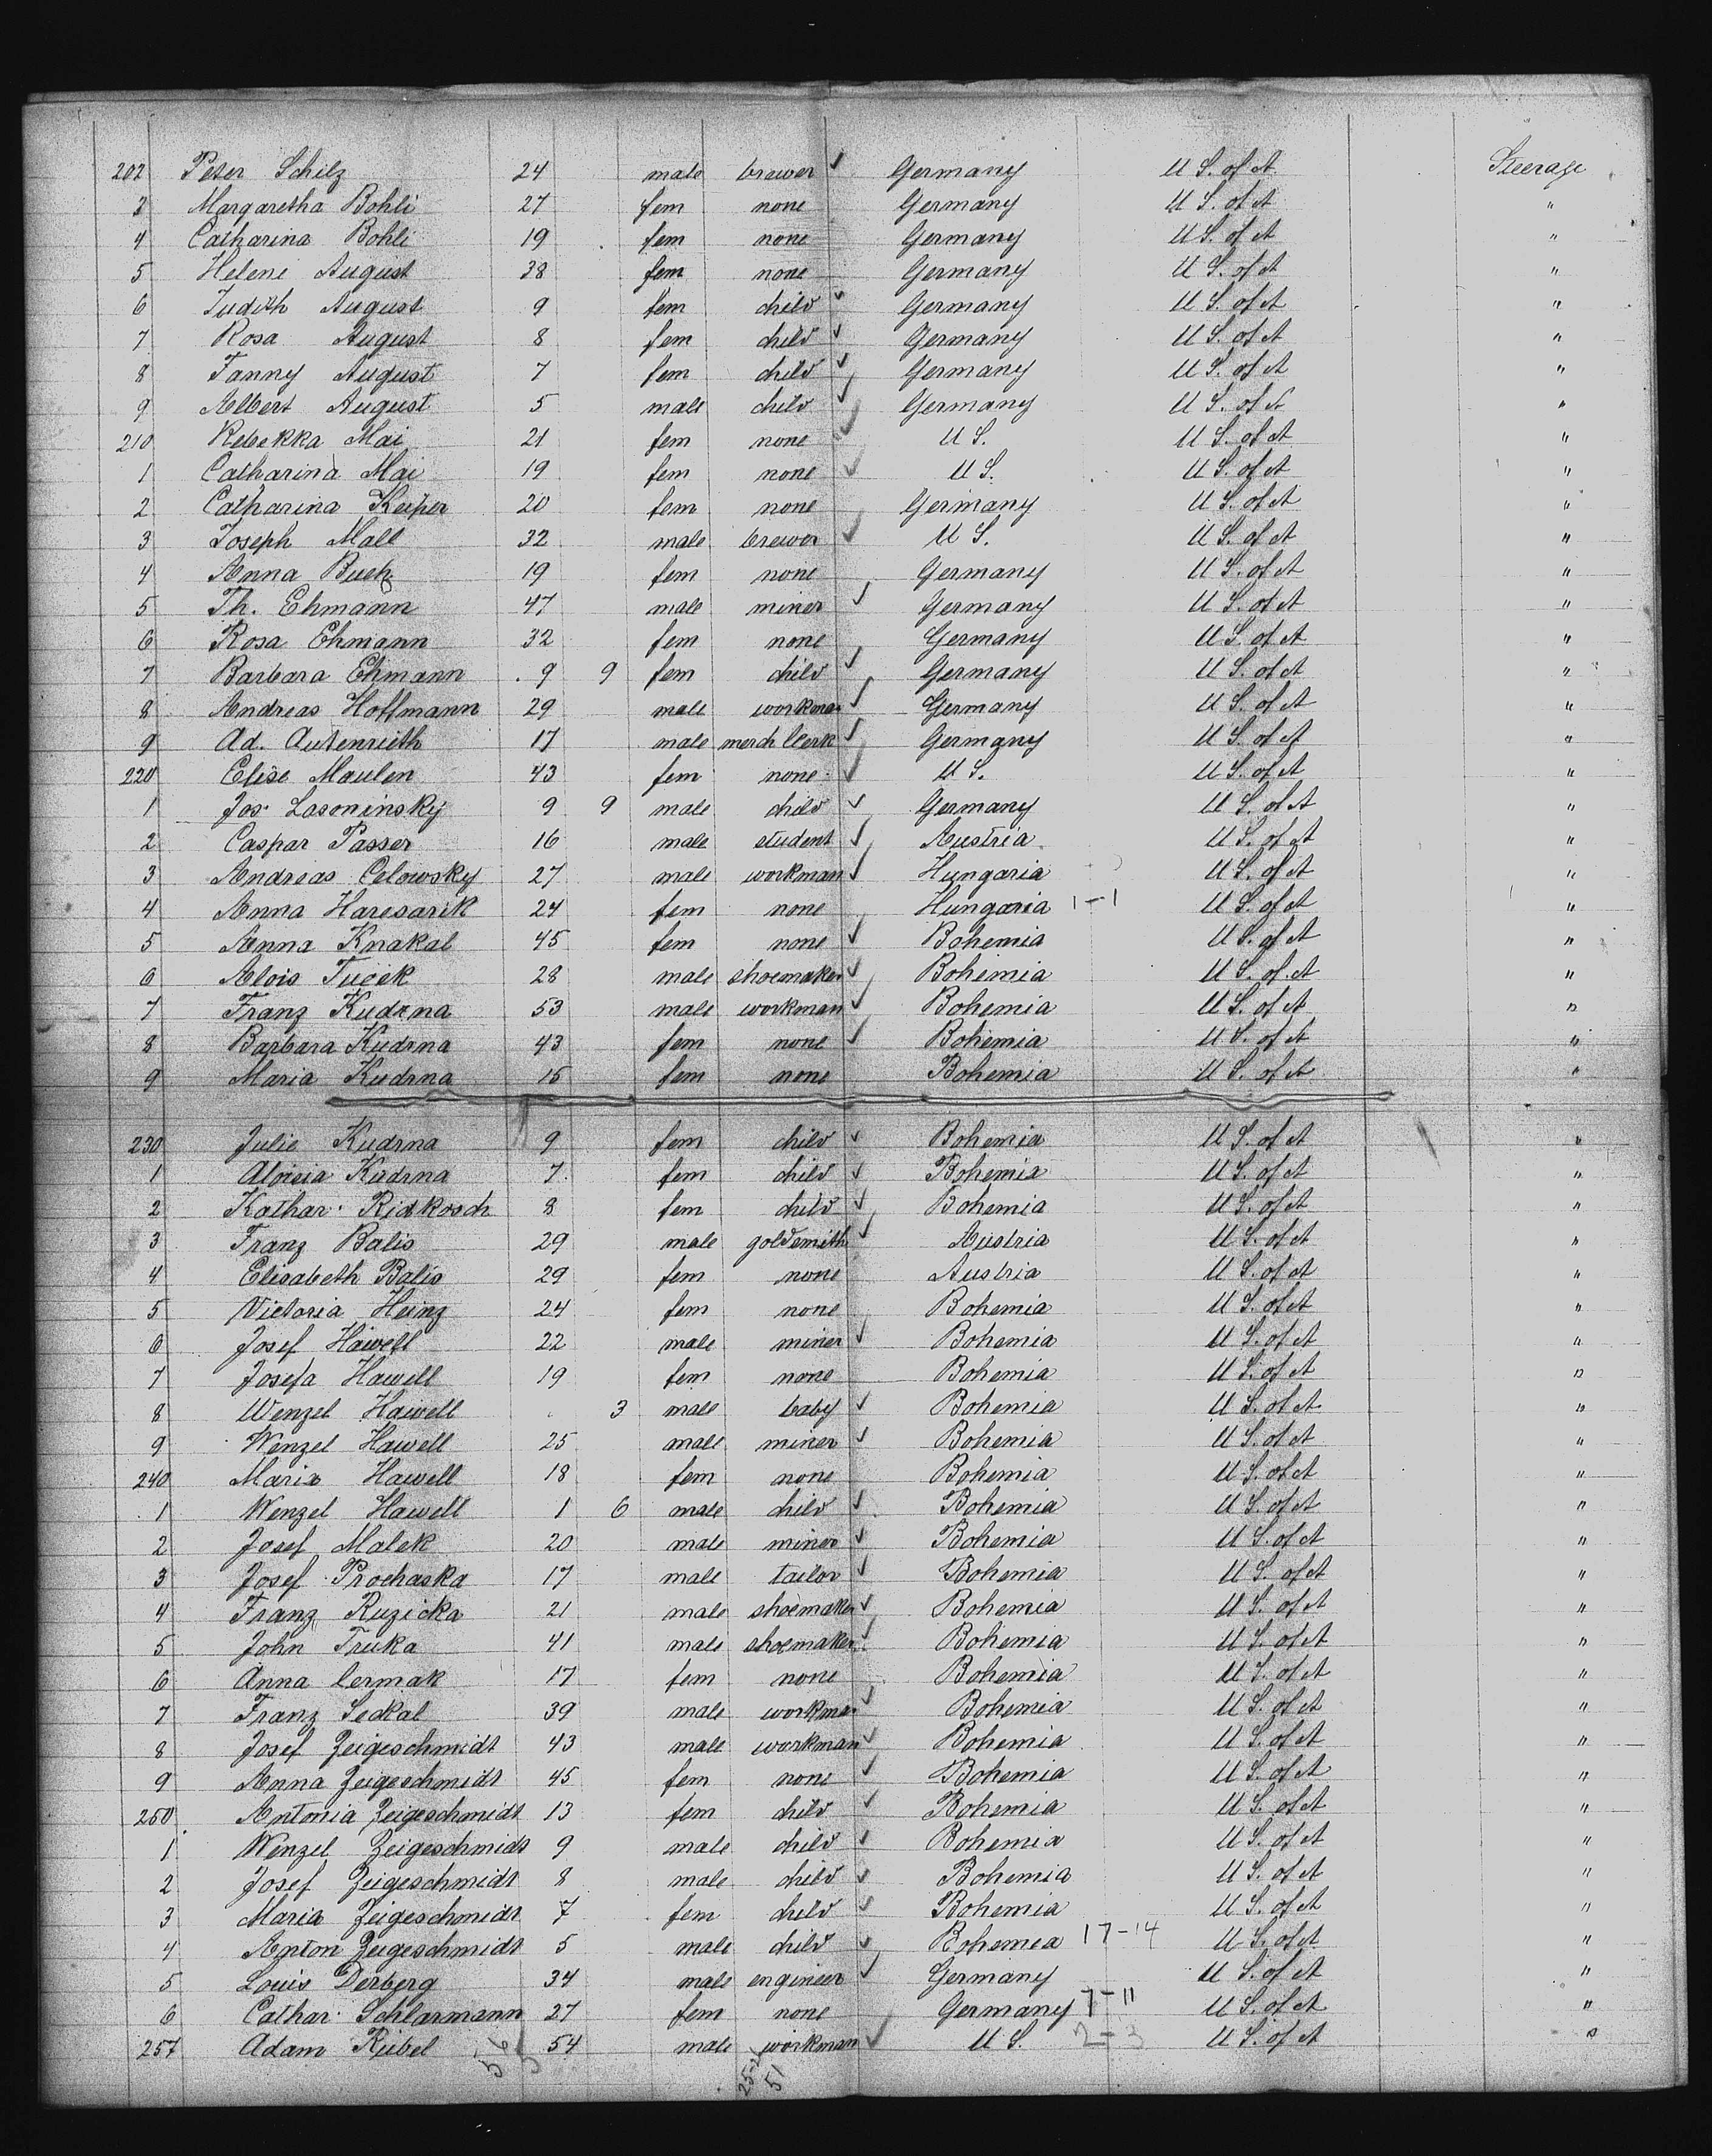 202 Peter Schilz 24 male brewer ✓ Germany U S. of A Steerage
3 Margaretha Bohli 27 fem none Germany U S. of A "
4 Catharina Bohli 19 fem none Germany U S. of A "
5 Helene August 38 fem none Germany U S. of A "
6 Judith August 9 fem child ✓ Germany U S. of A "
7 Rosa August 8 fem child ✓ Germany U S. of A "
8 Fanny August 7 fem child ✓ Germany U S. of A "
9 Albert August 5 male child ✓ Germany U S. of A "
210 Rebekka Mai 21 fem none ✓ U S. U S. of A "
1 Catharina Mai 19 fem none ✓ U S. U S. of A "
2 Catharina Keiper 20 fem none Germany U S. of A "
3 Joseph Mall 32 male brewer ✓ U S. U S. of A "
4 Anna Buch 19 fem none Germany U S. of A "
5 Th. Ehmann 47 male miner ✓ Germany U S. of A "
6 Rosa Ehmann 32 fem none Germany U S. of A "
7 Barbara Ehmann 9 9 fem child ✓ Germany U S. of A "
8 Andreas Hoffmann 29 male workman ✓ Germany U S. of A "
9 Ad. Autenrieth 17 male merch Clerk ✓ Germany U S. of A "
220 Elise Maulen 43 fem none ✓ U S. U S. of A "
1 Jos. Lasoninsky 9 9 male child ✓ Germany U S. of A "
2 Caspar Passer 16 male student ✓ Austria U S. of A "
3 Andreas Celowsky 27 male workman ✓ Hungaria U S. of A "
4 Anna Haresarik 24 fem none Hungaria 1-1 U S. of A "
5 Anna Knakal 45 fem none ✓ Bohemia U S. of A "
6 Alois Tucek 28 male shoemaker ✓ Bohemia U S. of A "
7 Franz Kudrna 53 male workman ✓ Bohemia U S. of A "
8 Barbara Kudrna 43 fem none ✓ Bohemia U S. of A "
9 Maria Kudrna 15 fem none Bohemia U S. of A "
230 Julie Kudrna 9 fem child ✓ Bohemia U S. of A "
1 Aloisia Kudrna 7 fem child ✓ Bohemia U S. of A "
2 Kathar. Ridkosch 8 fem child ✓ Bohemia U S. of A "
3 Franz Balis 29 male goldsmith ✓ Austria U S. of A "
4 Elisabeth Balis 29 fem none Austria U S. of A "
5 Victoria Heinz 24 fem none Bohemia U S. of A "
6 Josef Hawell 22 male miner ✓ Bohemia U S. of A "
7 Josefa Hawell 19 fem none Bohemia U S. of A "
8 Wenzel Hawell 3 male baby ✓ Bohemia U S. of A "
9 Wenzel Hawell 25 male miner ✓ Bohemia U S. of A "
240 Maria Hawell 18 fem none Bohemia U S. of A "
1 Wenzel Hawell 1 6 male child ✓ Bohemia U S. of A "
2 Josef Malek 20 male miner ✓ Bohemia U S. of A "
3 Josef Prochaska 17 male tailor ✓ Bohemia U S. of A "
4 Franz Ruzicka 21 male shoemaker ✓ Bohemia U S. of A "
5 John Truka 41 male shoemaker ✓ Bohemia U S. of A "
6 Anna Cermak 17 fem none Bohemia U S. of A "
7 Franz Sedkal 39 male workman ✓ Bohemia U S. of A "
8 Josef Zeigeschmidt 43 male workman ✓ Bohemia U S. of A "
9 Anna Zeigeschmidt 45 fem none ✓ Bohemia U S. of A "
250 Antonia Zeigeschmidt 13 fem child ✓ Bohemia U S. of A "
1 Wenzel Zeigeschmidt 9 male child ✓ Bohemia U S. of A "
2 Josef Zeigeschmidt 8 male child ✓ Bohemia U S. of A "
3 Maria Zeigeschmidt 7 fem child ✓ Bohemia U S. of A "
4 Anton Zeigeschmidt 5 male child ✓ Bohemia 17-14 U S. of A "
5 Louis Derberg 34 male engineer ✓ Germany U S. of A "
6 Cathar. Schlarmann 27 fem none Germany 7-11 U S. of A "
257 Adam Rubel 54 male workman ✓ U S. 2-3 U S. of A "
56 25-26
51